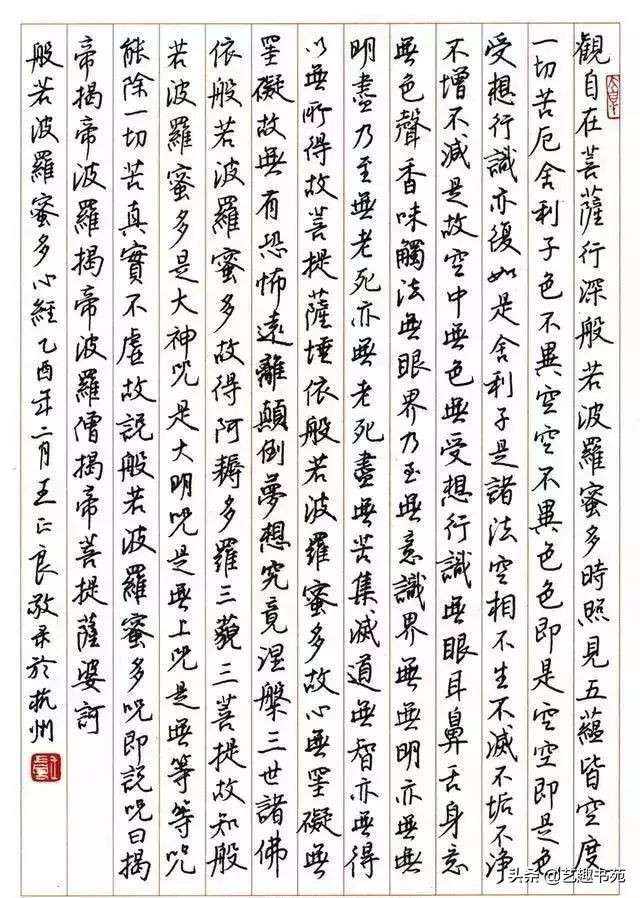 觀自在菩薩行深般若波羅蜜多時照見五蘊皆空度
一切苦厄舍利子色不異空空不異色色即是空空即是色
受想行識亦復如是舍利子是諸法空相不生不滅不垢不淨
不增不減是故空中無色無受想行識無眼耳鼻舌身意
無色聲香味觸法無眼界乃至無意識界無無明亦無無
明盡乃至無老死亦無老死盡無苦集滅道無智亦無得
以無所得故菩提薩埵依般若波羅蜜多故心無罣礙無
罣礙故無有恐怖遠離顛倒夢想究竟涅槃三世諸佛
依般若波羅蜜多故得阿耨多羅三藐三菩提故知般
若波羅蜜多是大神咒是大明咒是無上咒是無等等咒
能除一切苦真實不虛故說般若波羅蜜多咒即說咒曰揭
帝揭帝波羅揭帝波羅僧揭帝菩提薩婆訶
般若波羅蜜多心經乙酉年二月王仁良敬录於杭州
头条 @艺趣书苑